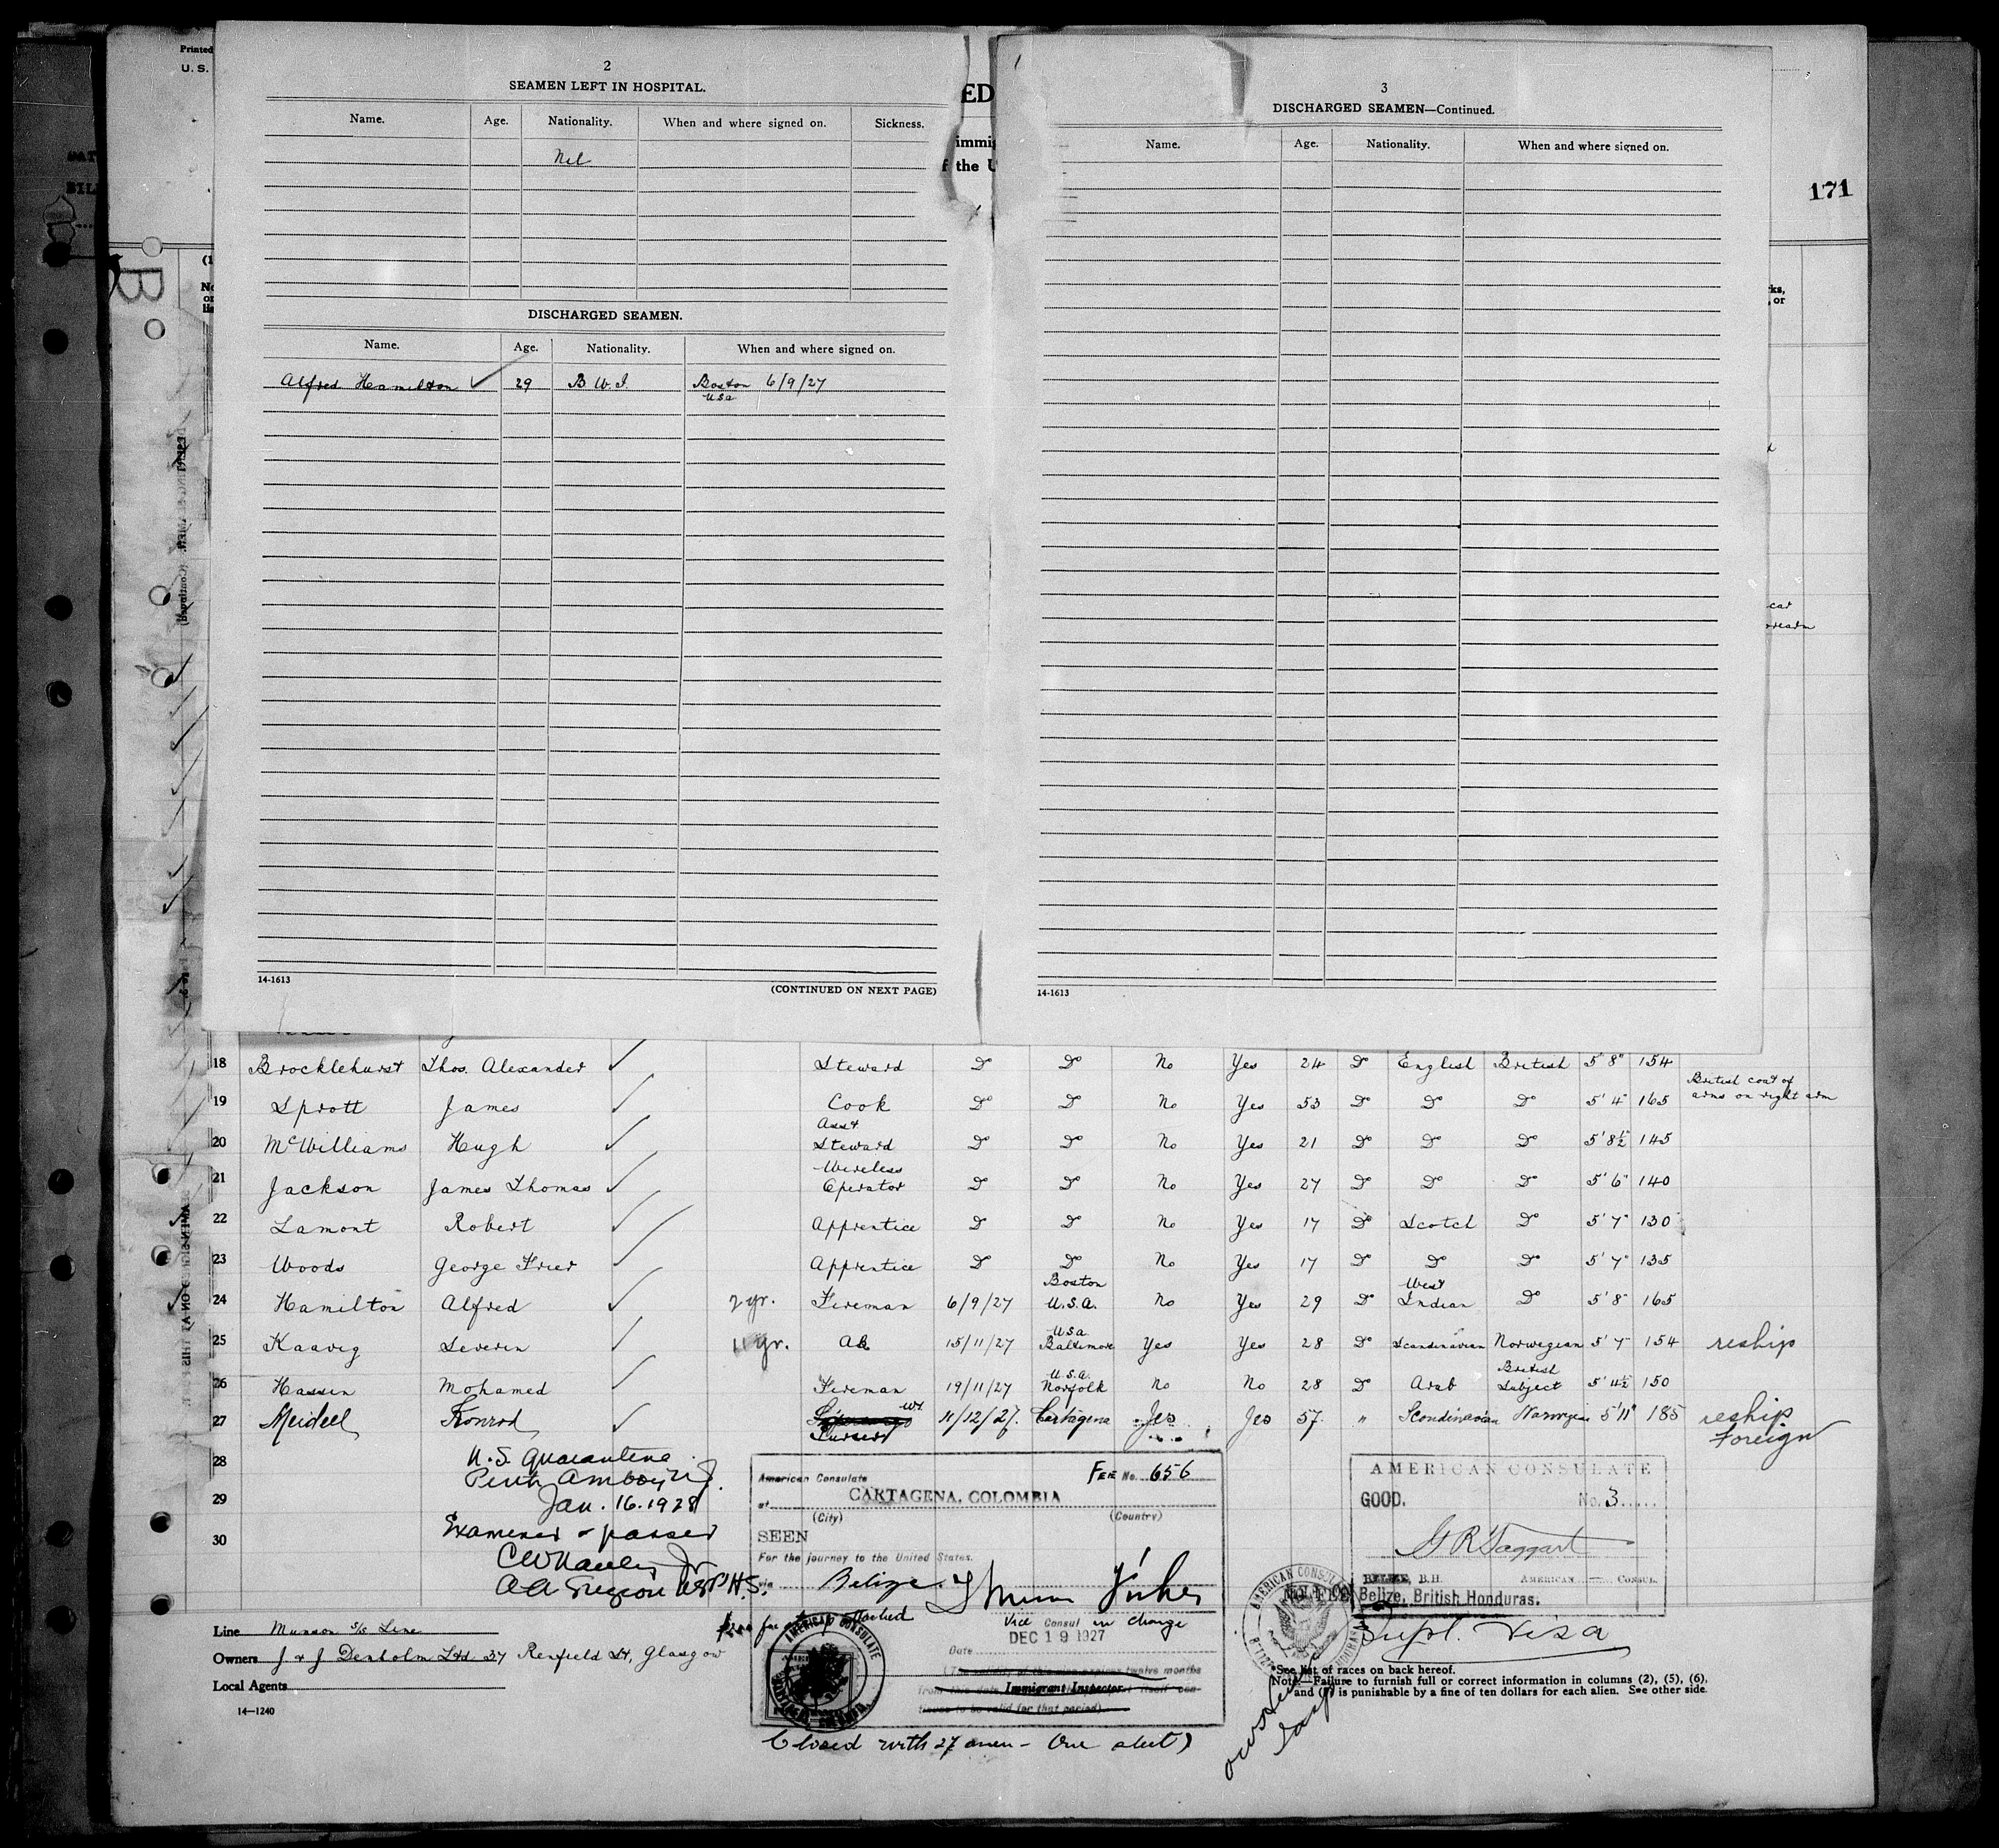 Printed
U. S.
2
SEAMEN LEFT IN HOSPITAL.
Name. Age. Nationality. When and where signed on. Sickness.
Nil
DISCHARGED SEAMEN.
Name. Age. Nationality. When and where signed on.
Alfred Hamilton ✓ 29 B W I. Boston 6/9/27
USA
14-1613
(CONTINUED ON NEXT PAGE)
ED
immig
f the U
3
DISCHARGED SEAMEN—Continued.
Name. Age. Nationality. When and where signed on.
14-1613
171
B
18 Brocklehurst Thos. Alexander ✓ Steward Do Do No Yes 24 Do English British 5' 8" 154
19 Sprott James ✓ Cook Do Do No Yes 53 Do Do Do 5' 4" 165 British coat of arms on right arm
20 McWilliams Hugh ✓ Asst Steward Do Do No Yes 21 Do Do Do 5' 8½" 145
21 Jackson James Thomas ✓ Wireless Operator Do Do No Yes 27 Do Do Do 5' 6" 140
22 Lamont Robert ✓ Apprentice Do Do No Yes 17 Do Scotch Do 5' 7" 130
23 Woods George Frier ✓ Apprentice Do Do No Yes 17 Do Do Do 5' 7" 135
24 Hamilton Alfred ✓ 2 yr. Fireman 6/9/27 Boston U.S.A. No Yes 29 Do West Indian Do 5' 8" 165
25 Kaavig Severin ✓ 11 yr. AB 15/11/27 USA Baltimore Yes Yes 28 Do Scandinavian Norwegian 5' 7" 154 reship
26 Hassin Mohamed ✓ Fireman 19/11/27 U.S.A. Norfolk No No 28 Do Arab British Subject 5' 4½ 150
27 Meidell Konrad ✓ 11/12/27. Cartagena Yes Yes 57. " Scandinavian Norwegian 5' 11" 185 reship Foreign
28
29
30
U.S. Quarantine
Perth Amboy N.J.
Jan. 16. 1928
Examined & passed
AA Surgeon USPHS.
American Consulate FEE No. 656
at CARTAGENA, COLOMBIA
(City) (Country)
SEEN
For the journey to the United States.
via Belize
Vice Consul in charge
Date DEC 19 1927
Immigrant Inspector
AMERICAN CONSULATE
AMERICAN CONSULATE
GOOD. No. 3
G R Taggart
BELIZE, B.H. AMERICAN CONSUL.
NO FEE Belize, British Honduras.
Supl. Visa
AMERICAN CONSULATE
Line Munson S/S Line
Owners J & J Denholm Ltd. 37 Renfield St, Glasgow
Local Agents
14—1240
*See list of races on back hereof.
Note.—Failure to furnish full or correct information in columns (2), (5), (6),
and (7) is punishable by a fine of ten dollars for each alien. See other side.
Closed with 27 men - One sheet)